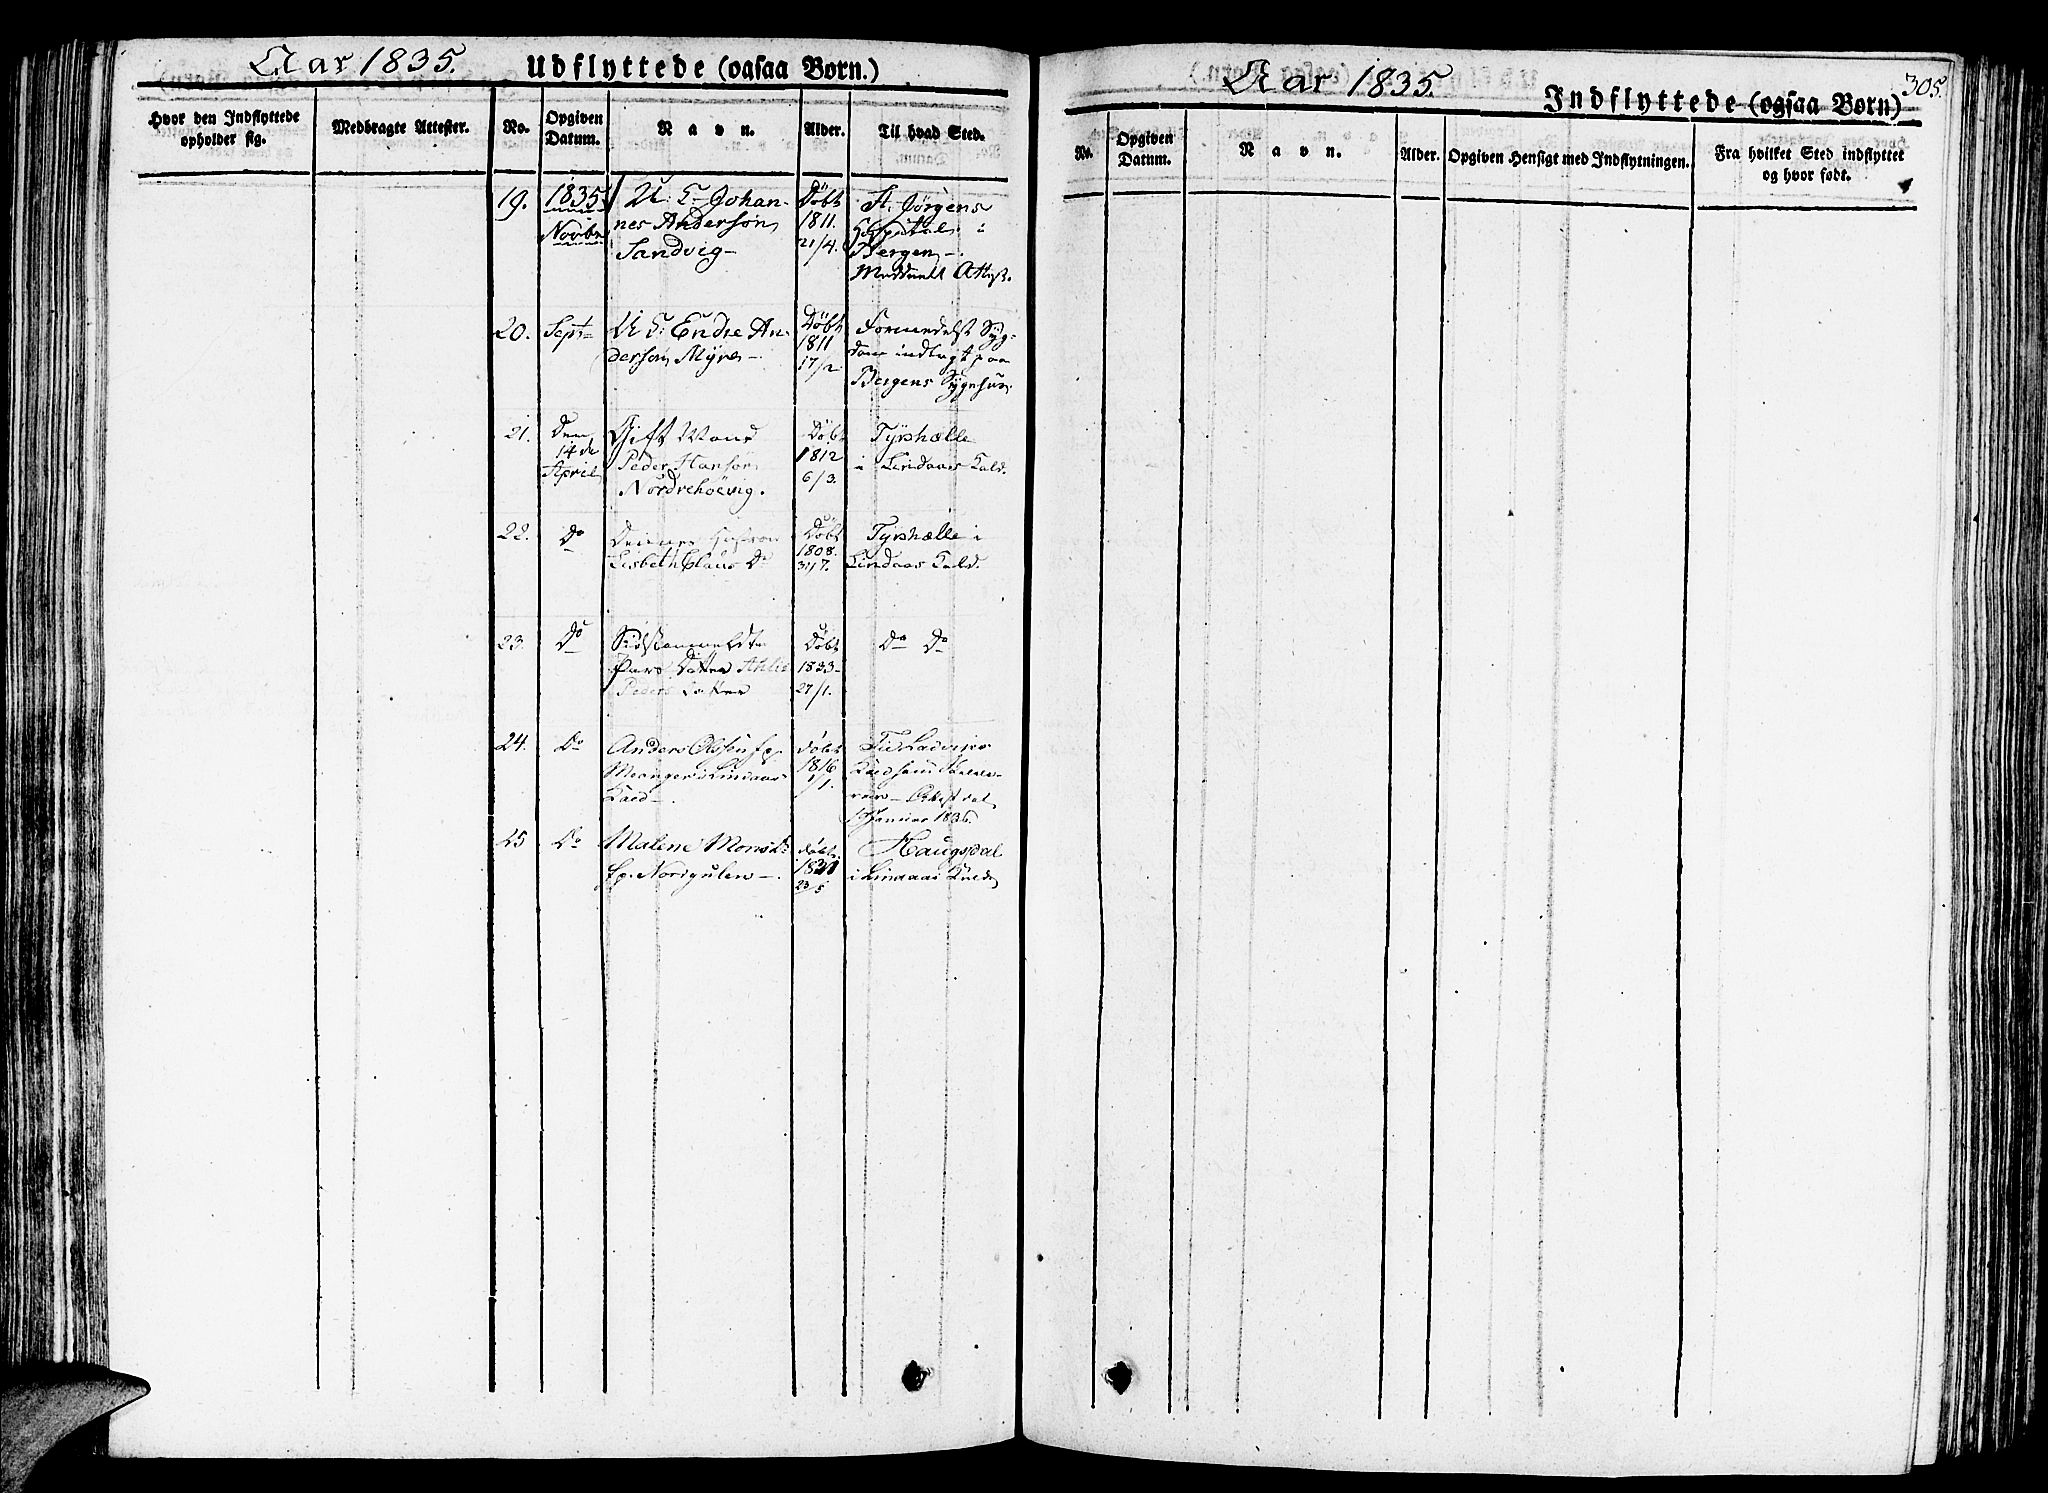 Aar 1835.
Udflyttede (ogsaa Børn.)
Hvor den Indflyttede
opholder sig.
Medbragte Attester.
No.
Opgiven
Datum.
Navn.
Alder.
Til hvad Sted.
19.
1835
Novbr
U: C. Johan-
nes Anderson
Sandvig-
Døbt
1811.
21/4.
St. Jørgens
Hospital i
Bergen -.
Attest.
20.
Sept
U C: Endre An-
derson Myre -
Døbt
1811
17/2
Formedelst Syg-
dom indlagt paa
Bergens Sygehus.
21.
Den
14de
April
Gift Mand
Peder Hanson
Nordrehoevig.
Døbt
1812
6/3.
Tyrshælle
i Lindaas Kald.
22.
Do
Lisbeth Claus D
Døbt
1808.
31/7.
Tyrshælle i
Lindaas Kald.
23.
Do
Sidstanmeldte
Pars Datter
Peders Datter
Døbt
1833-
27/1.
Do Do
24.
Do
Anders Olsen fp.
Meanger i Lindaas
Kald -.
døbt
1816
1/1.
Til Ladvigs
Kald som
Attest dat
1 Januar 1836.
25
Do
Malene Monsd
fp. Nordgulen -.
døbt.
23/5
Haugsdal
i Lindaas Kald
Aar 1835.
305.
Indflyttede (ogsaa Børn)
No.
Opgiven
Datum.
Navn.
Alder.
Opgiven Hensigt med Indflytningen.
Fra hvilket Sted indflyttet
og hvor født.